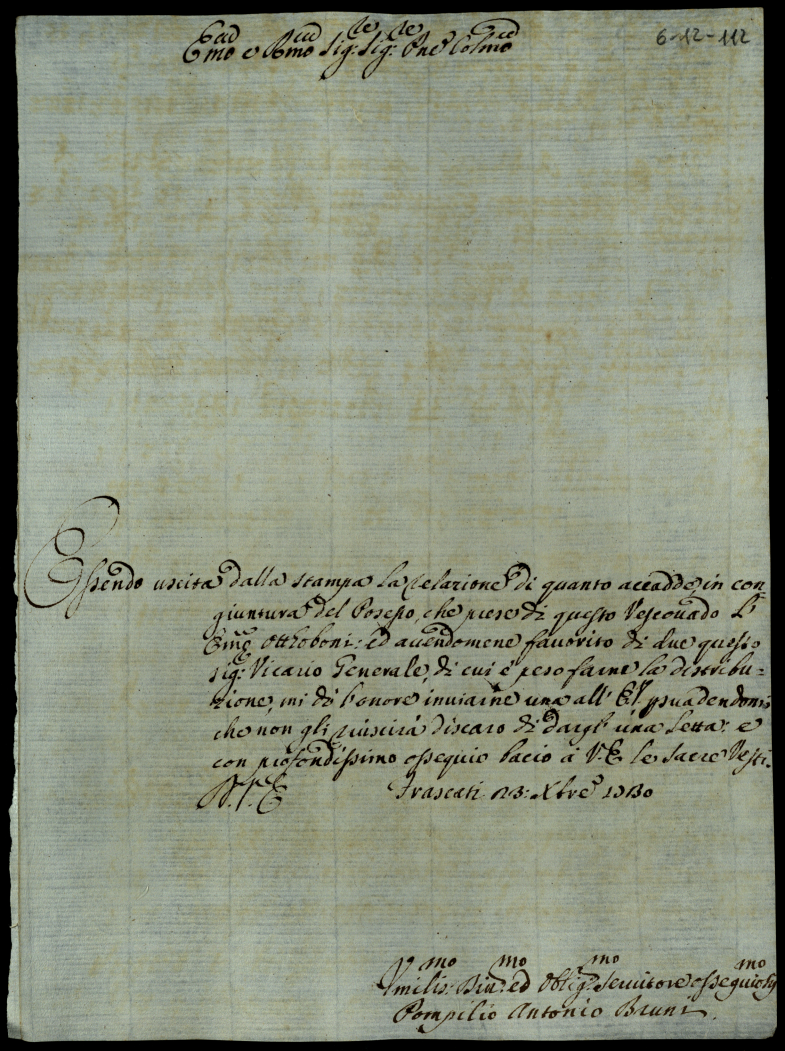 6-12-112
Emo e Rmo Sig: Sig: Pne Colmo
Essendo uscita dalla stampa la relazione di quanto accadde, in con
giuntura del Posesso, che prese di questo Vescovado L'
Emo Otthoboni: ed avendomene favorito di due questo
Sig: Vicario Generale, di cui è peso farne la distribu-
zione, mi dò l'onore inviarne una all' E.V. psuadendomi
che non gli riuscirà discaro di dargl' una letta: e
con profondissimo ossequio bacio à V.E. le sacre Vesti.
D.V.E. Frascati 23: Xbre 1730
Umilis:mo Div:mo ed Oblig:mo Servitore ossequiosmo
Pompilio Antonio Bruni.